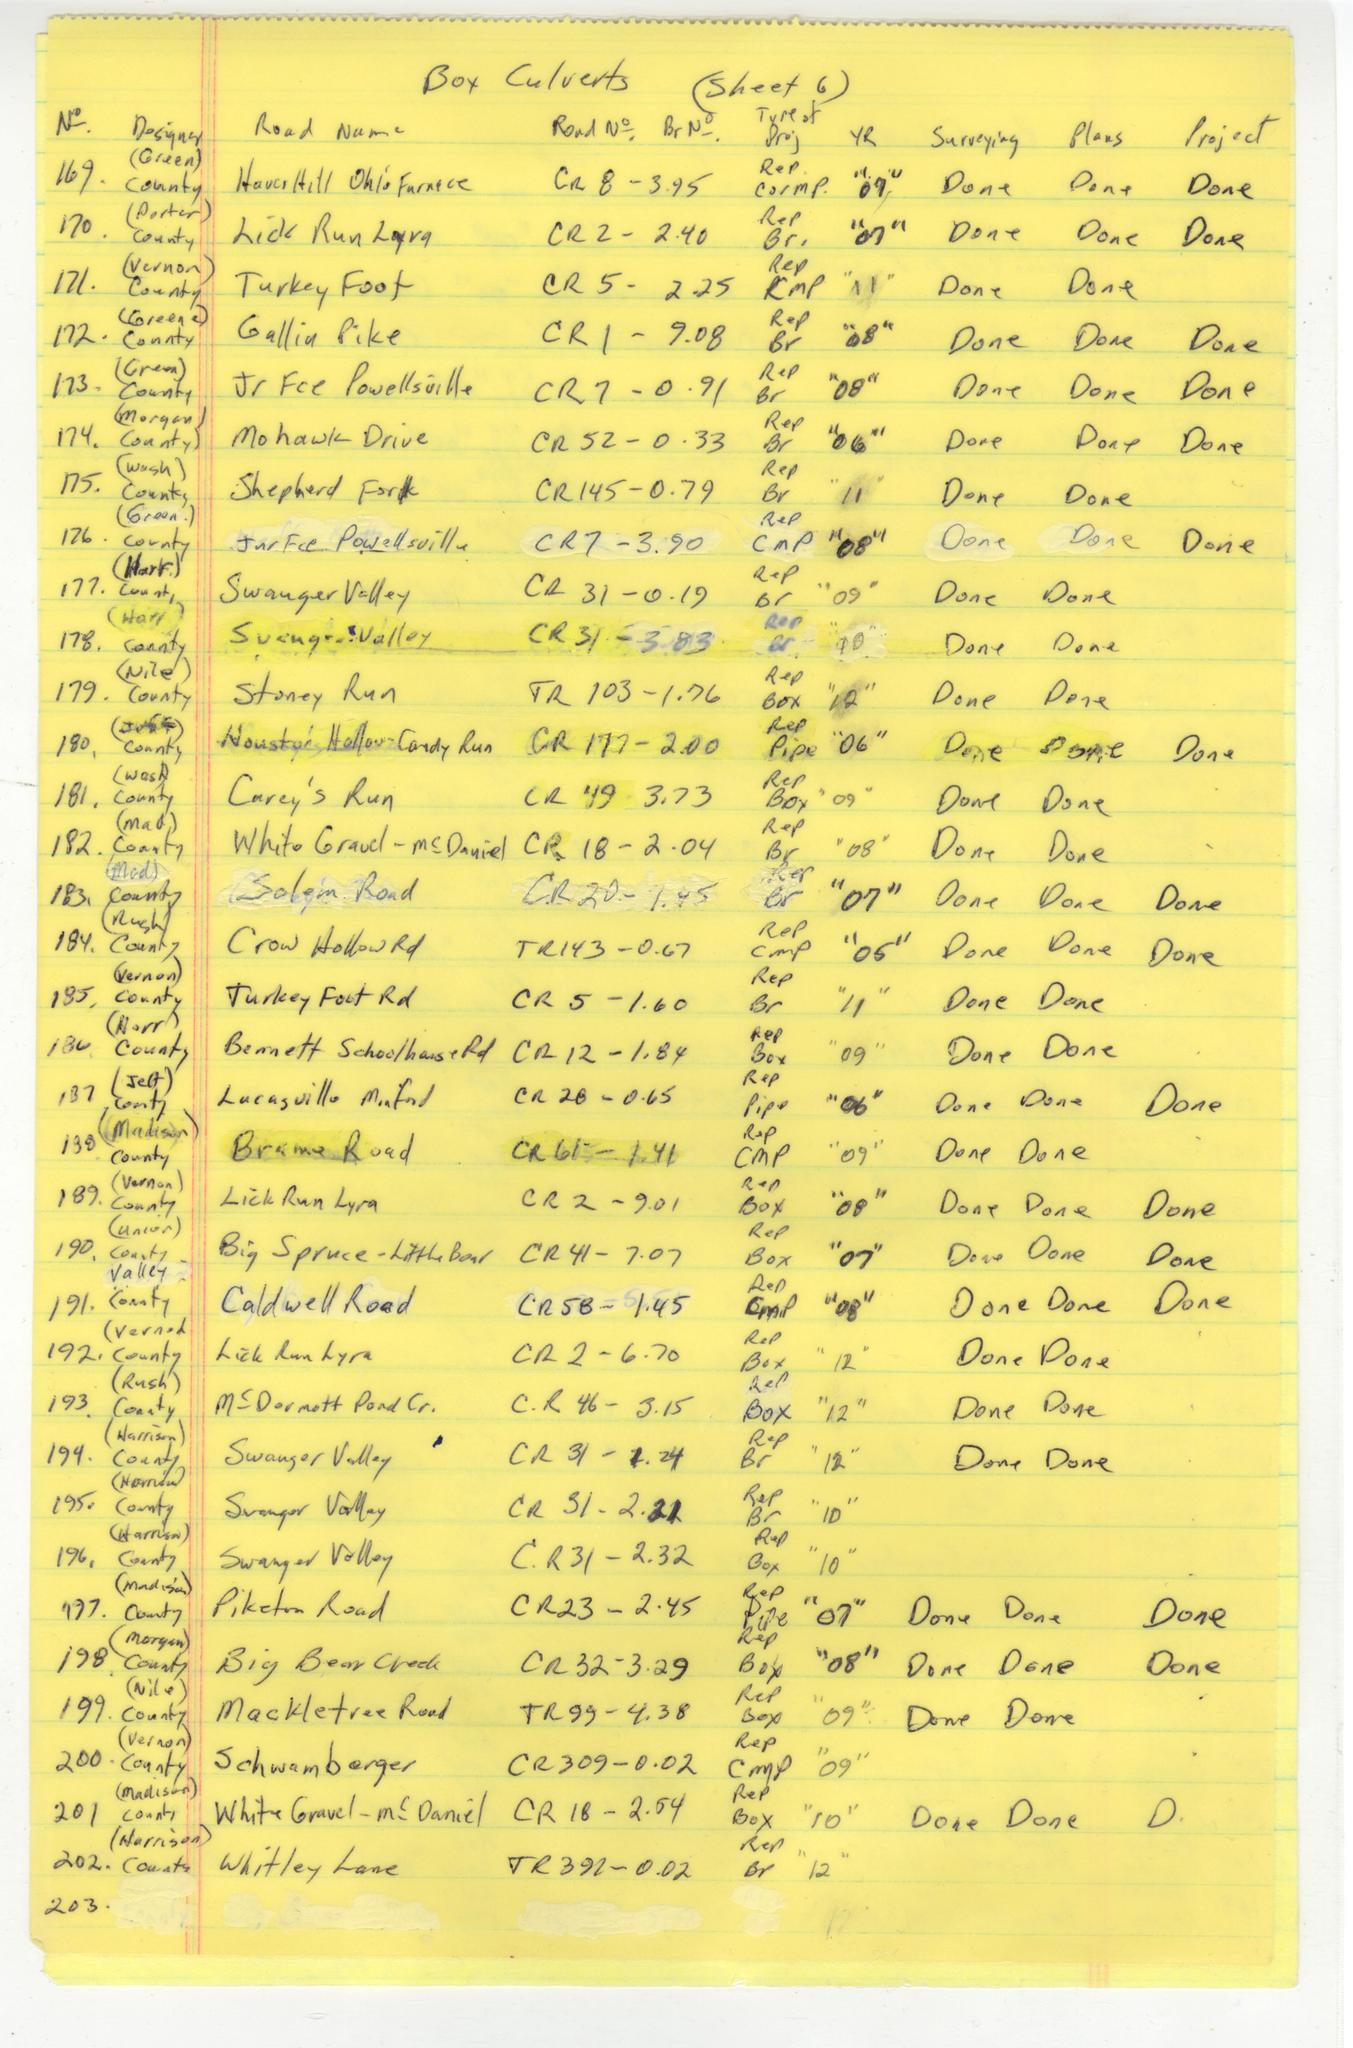 Box Culverts (Sheet 6)
No. Designer Road Name Road No. Br No. Type of Proj YR Surveying Plans Project
169. (Green) County HaverHill Ohio Furnace CR 8 - 3.95 Rep. Cormp. "07" Done Done Done
170. (Porter) County Lick Run Lyra CR 2 - 2.40 Rep Br. "07" Done Done Done
171. (Vernon) County Turkey Foot CR 5 - 2.25 Rep CMP "11" Done Done
172. (Greene) County Gallia Pike CR 1 - 9.08 Rep Br "08" Done Done Done
173. (Green) County Jr Fce Powellsville CR 7 - 0.91 Rep Br "08" Done Done Done
174. (Morgan) County) Mohawk Drive CR 52 - 0.33 Rep Br "06" Done Done Done
175. (Wash) County Shepherd Fork CR 145 - 0.79 Rep Br "11" Done Done
176. (Green.) County Jnr Fce Powellsville CR 7 - 3.90 Rep CMP "08" Done Done Done
177. (Harr.) County Swanger Valley CR 31 - 0.19 Rep Br "09" Done Done
178. (Harr) County Swanger Valley CR 31 - 3.83 Rep Br "10" Done Done
179. (Nile) County Stoney Run TR 103 - 1.76 Rep Box "12" Done Done
180. County Hollow-Candy Run CR 177 - 2.00 Rep Pipe "06" Done Done Done
181. (Wash) County Carey's Run CR 49 3.73 Rep Box "09" Done Done
182. (Mad) County White Gravel - McDaniel CR 18 - 2.04 Rep Br "08" Done Done
183. (Mad) County Salem Road CR 20 - 1.45 Rep Br "07" Done Done Done
184. (Rush) County Crow Hollow Rd TR 143 - 0.67 Rep CMP "05" Done Done Done
185. (Vernon) County Turkey Foot Rd CR 5 - 1.60 Rep Br "11" Done Done
186. (Harr) County Bennett Schoolhouse Rd CR 12 - 1.84 Rep Box "09" Done Done
187 (Jeff) County Lucasville Minford CR 28 - 0.65 Rep Pipe "06" Done Done Done
188 (Madison) County Brame Road CR 61 - 1.41 Rep CMP "09" Done Done
189. (Vernon) County Lick Run Lyra CR 2 - 9.01 Rep Box "08" Done Done Done
190. (Union) County Big Spruce - Little Bear CR 41 - 7.07 Rep Box "07" Done Done Done
191. Valley County Caldwell Road CR 58 - 1.45 Rep CMP "08" Done Done Done
192. (Vernon County Lick Run Lyra CR 2 - 6.70 Rep Box "12" Done Done
193. (Rush) County McDermott Pond Cr. C.R 46 - 3.15 Rep Box "12" Done Done
194. (Harrison) County Swanger Valley CR 31 - 1.24 Rep Br "12" Done Done
195. (Harrison) County Swanger Valley CR 31 - 2.21 Rep Br "10"
196. (Harrison) County Swanger Valley C.R 31 - 2.32 Rep Box "10"
197. (Madison) County Piketon Road CR 23 - 2.45 Rep Pipe "07" Done Done Done
198. (Morgan) County Big Bear Creek CR 32 - 3.29 Rep Box "08" Done Done Done
199. (Nile) County Mackletree Road TR 99 - 4.38 Rep Box "09" Done Done
200. (Vernon) County Schwamberger CR 309 - 0.02 Rep CMP "09"
201 (Madison) County White Gravel - McDaniel CR 18 - 2.54 Rep Box "10" Done Done D.
202. (Harrison) County Whitley Lane TR 392 - 0.02 Rep Br "12"
203.